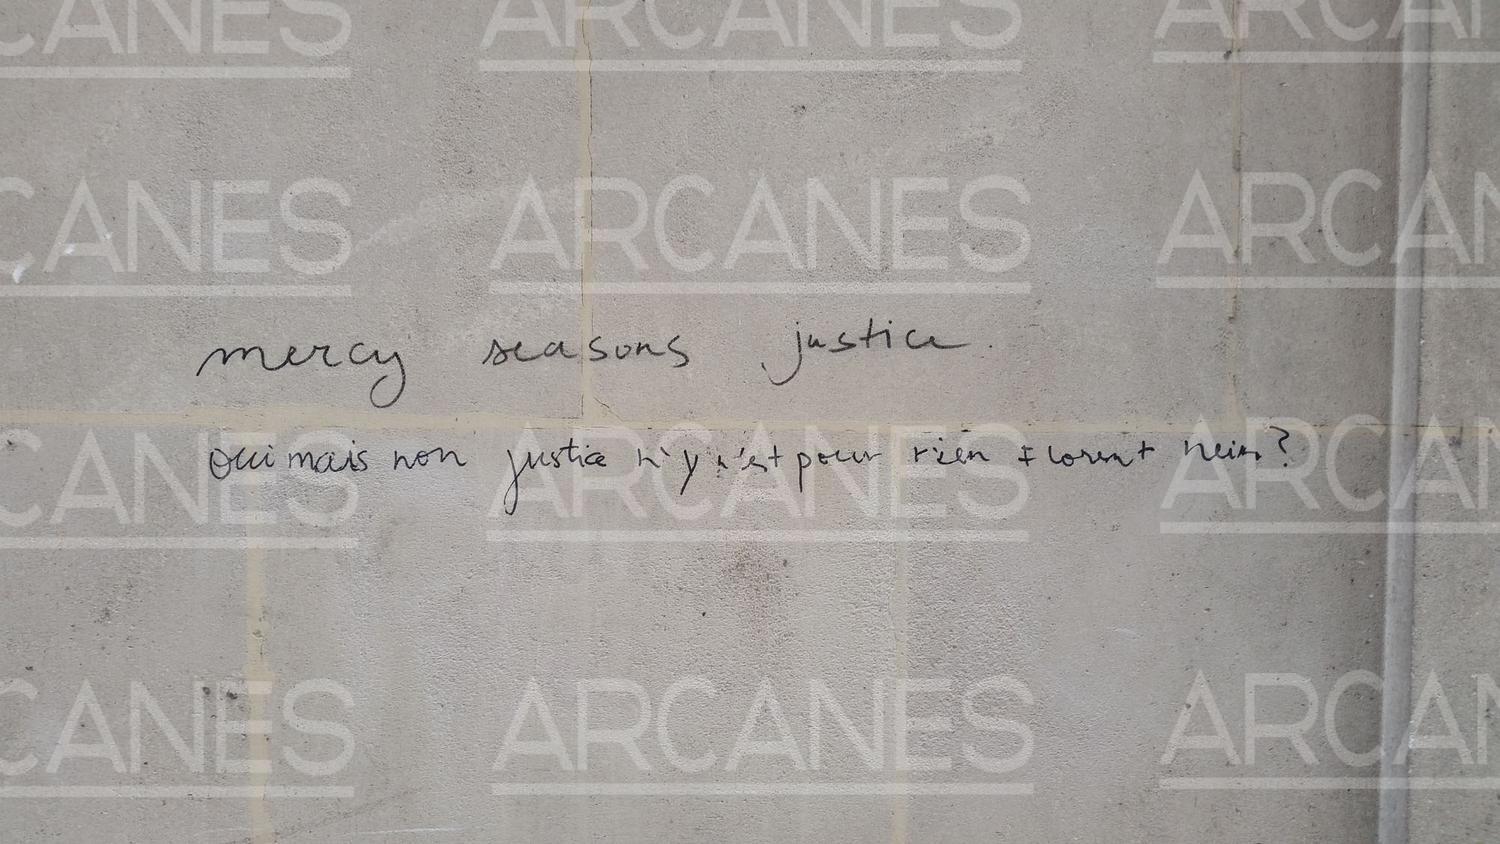 ARCANES ARCANES ARCANES
ARCANES ARCANES ARCANES
mercy seasons justice.
oui mais non justice n'y n'est pour rien Florent hein?
ARCANES ARCANES ARCANES
ARCANES ARCANES ARCANES